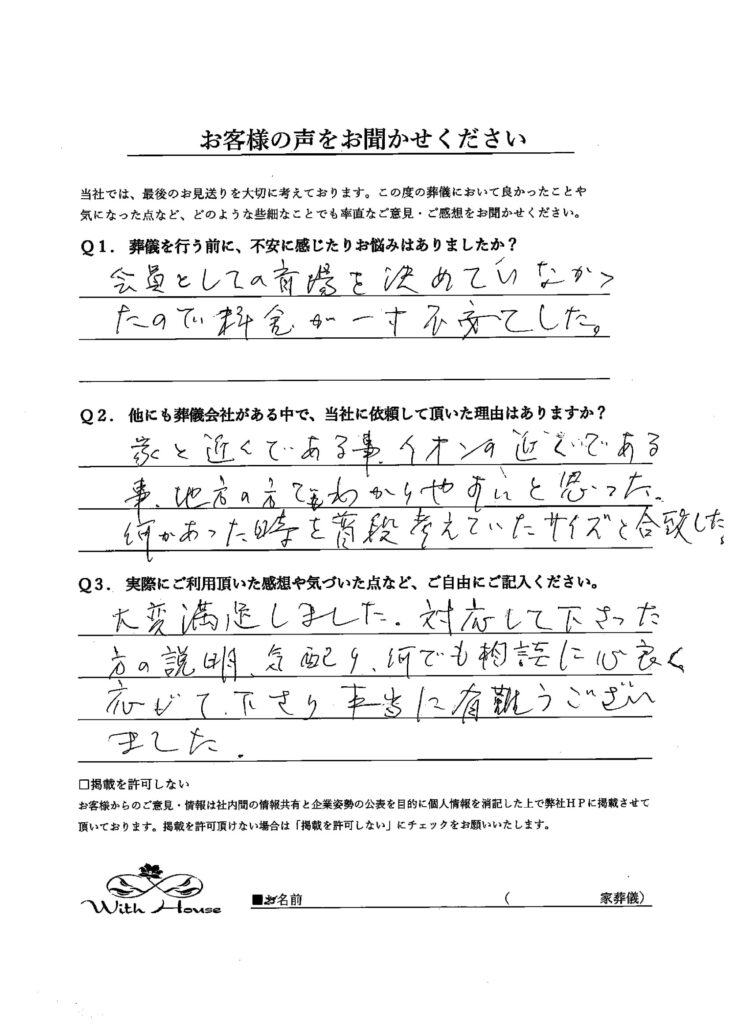 お客様の声をお聞かせください
当社では、最後のお見送りを大切に考えております。この度の葬儀において良かったことや
気になった点など、どのような些細なことでも率直なご意見・ご感想をお聞かせください。
Q1. 葬儀を行う前に、不安に感じたりお悩みはありましたか？
会員としての斎場を決めていなかっ
たので料金が一寸不安でした。
Q2. 他にも葬儀会社がある中で、当社に依頼して頂いた理由はありますか？
家と近くである事、イオンの近くである
事、地方の方でもわかりやすいと思った。
何かあった時を普段考えていたサイズと合致した。
Q3. 実際にご利用頂いた感想や気づいた点など、ご自由にご記入ください。
大変満足しました。対応して下さった
方の説明、気配り、何でも相談に心良く
応じて下さり本当に有難うござい
ました。
□掲載を許可しない
お客様からのご意見・情報は社内間の情報共有と企業姿勢の公表を目的に個人情報を消記した上で弊社HPに掲載させて
頂いております。掲載を許可頂けない場合は「掲載を許可しない」にチェックをお願いいたします。
With House
■お名前 （ 家葬儀）